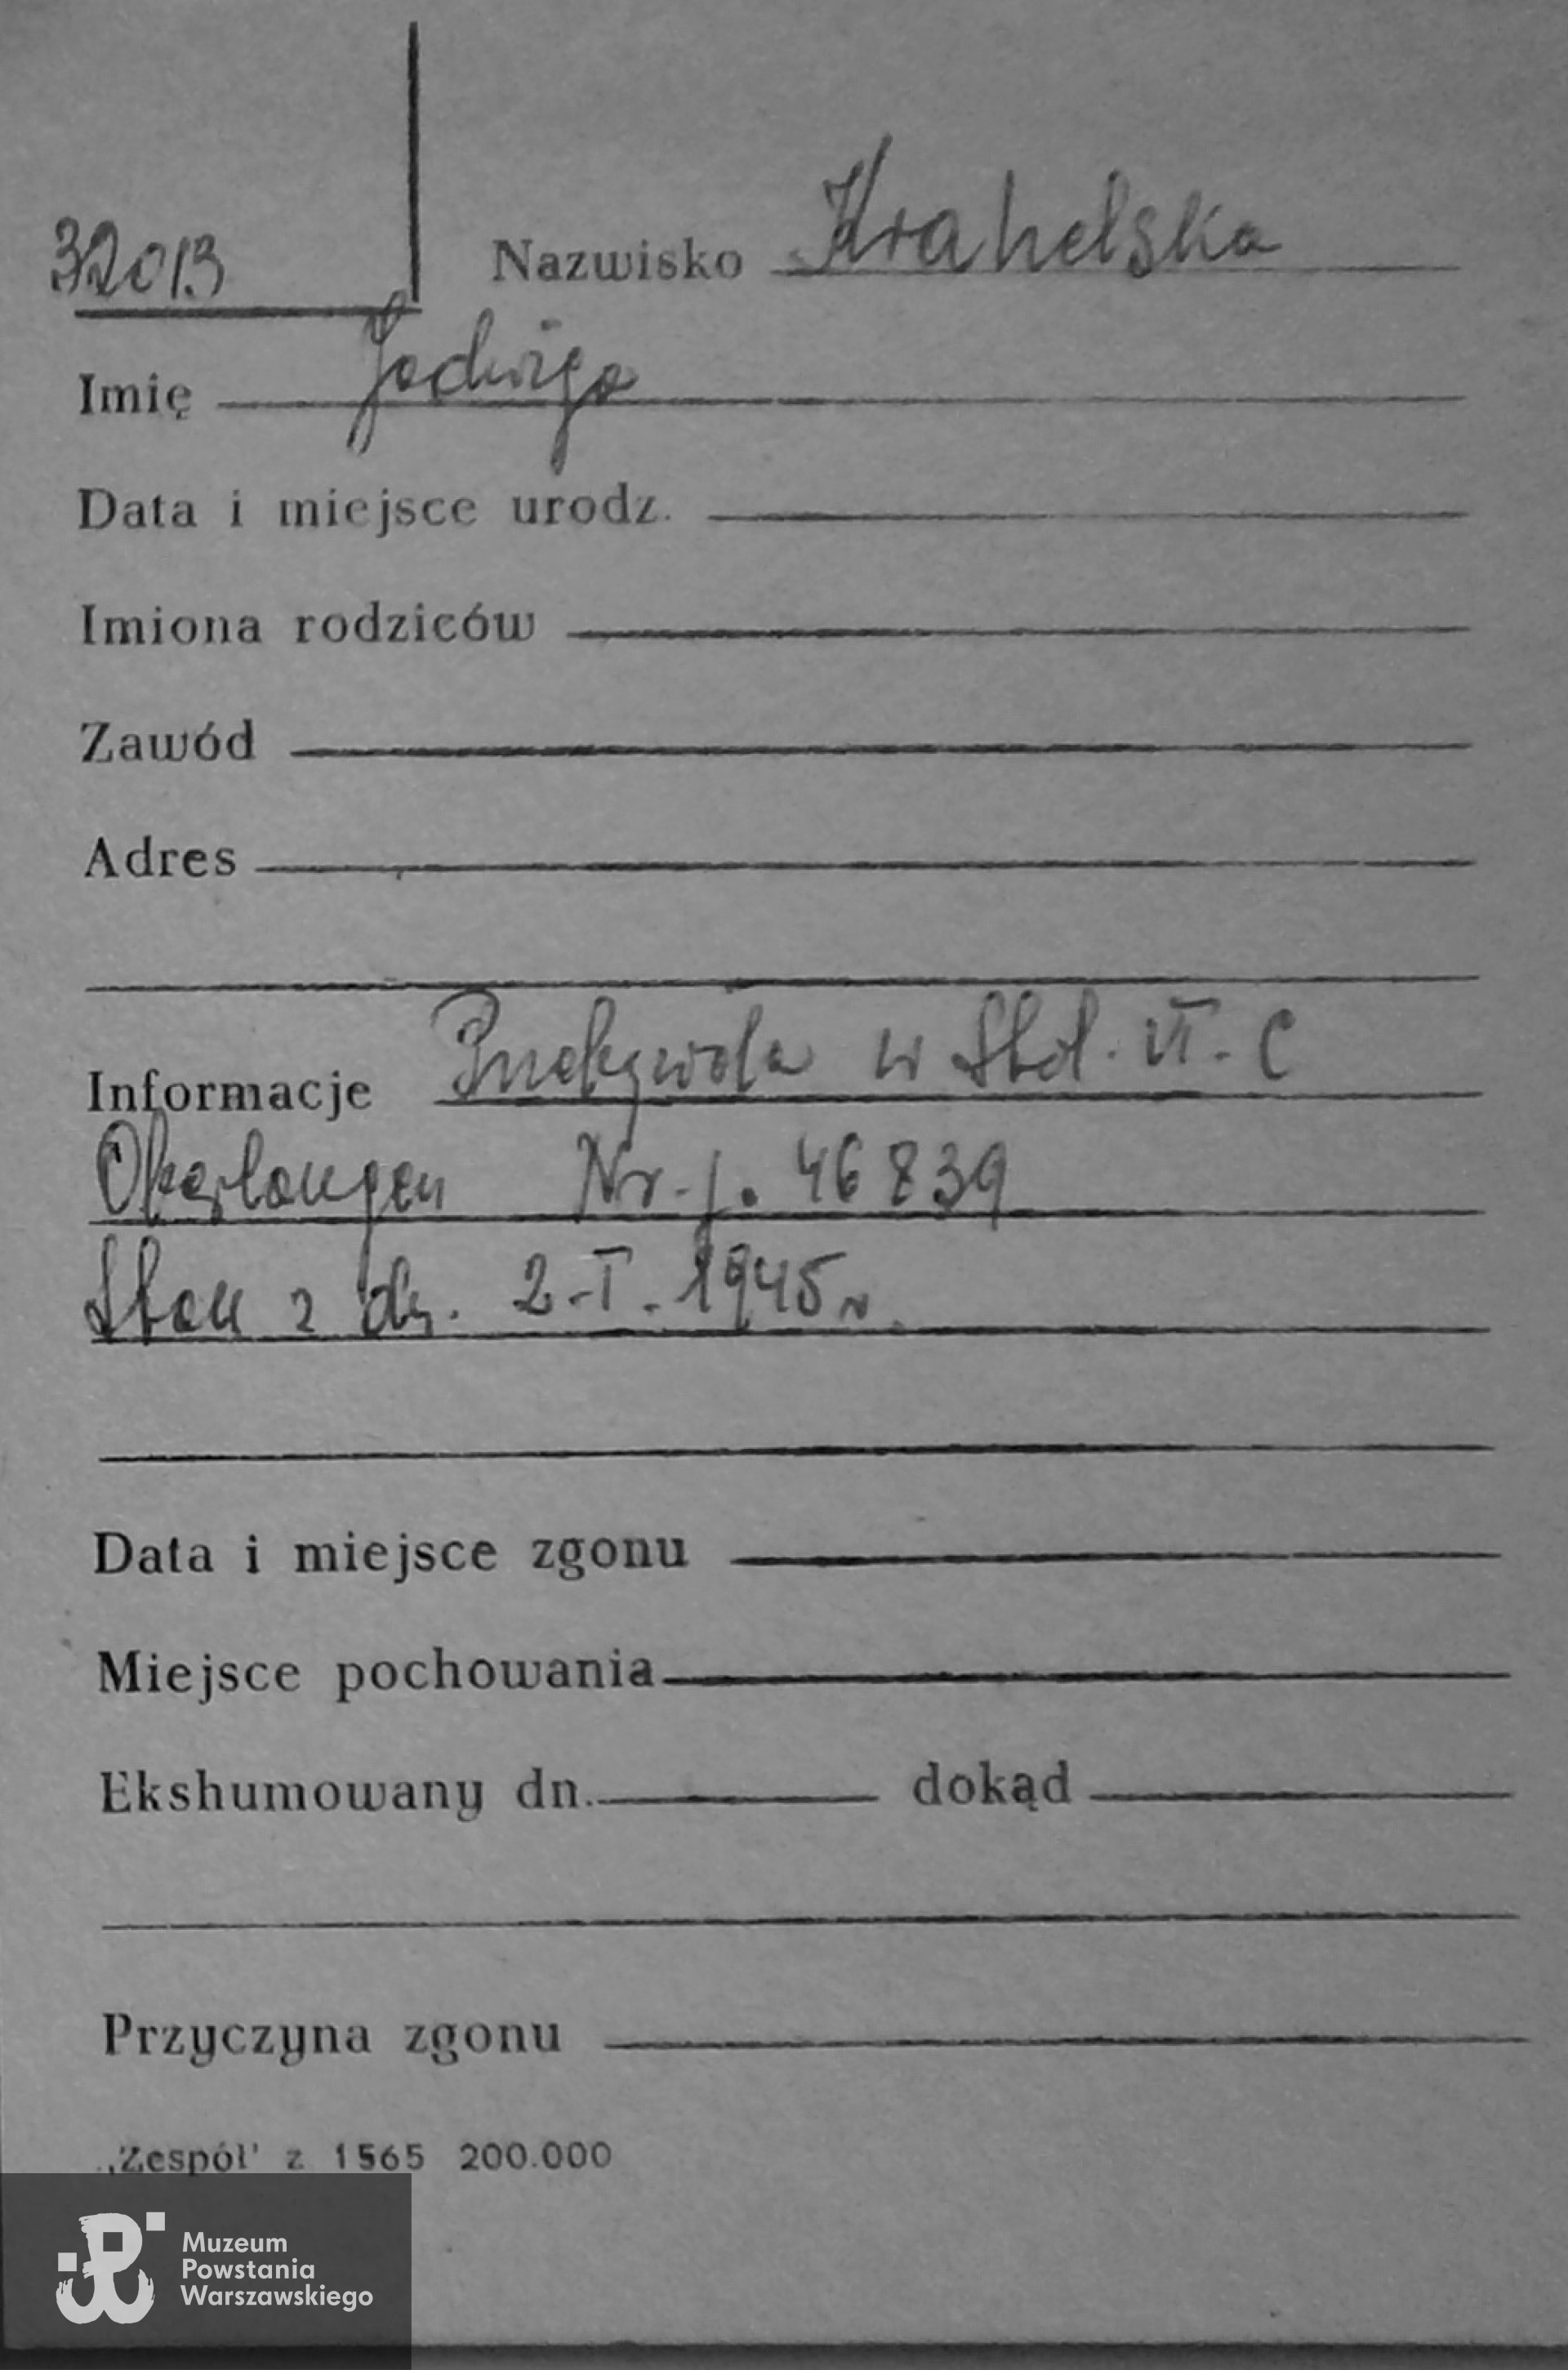 32013
Nazwisko Krahelska
Imię Jadwiga
Data i miejsce urodz.
Imiona rodziców
Zawód
Adres
Informacje Przebywała w Stal. VI-C
Oberlangen Nr. j. 46839
Stan z dn. 2-I-1945 r.
Data i miejsce zgonu
Miejsce pochowania
Ekshumowany dn. dokąd
Przyczyna zgonu
„Zespół" z 1565 200.000
Muzeum
Powstania
Warszawskiego